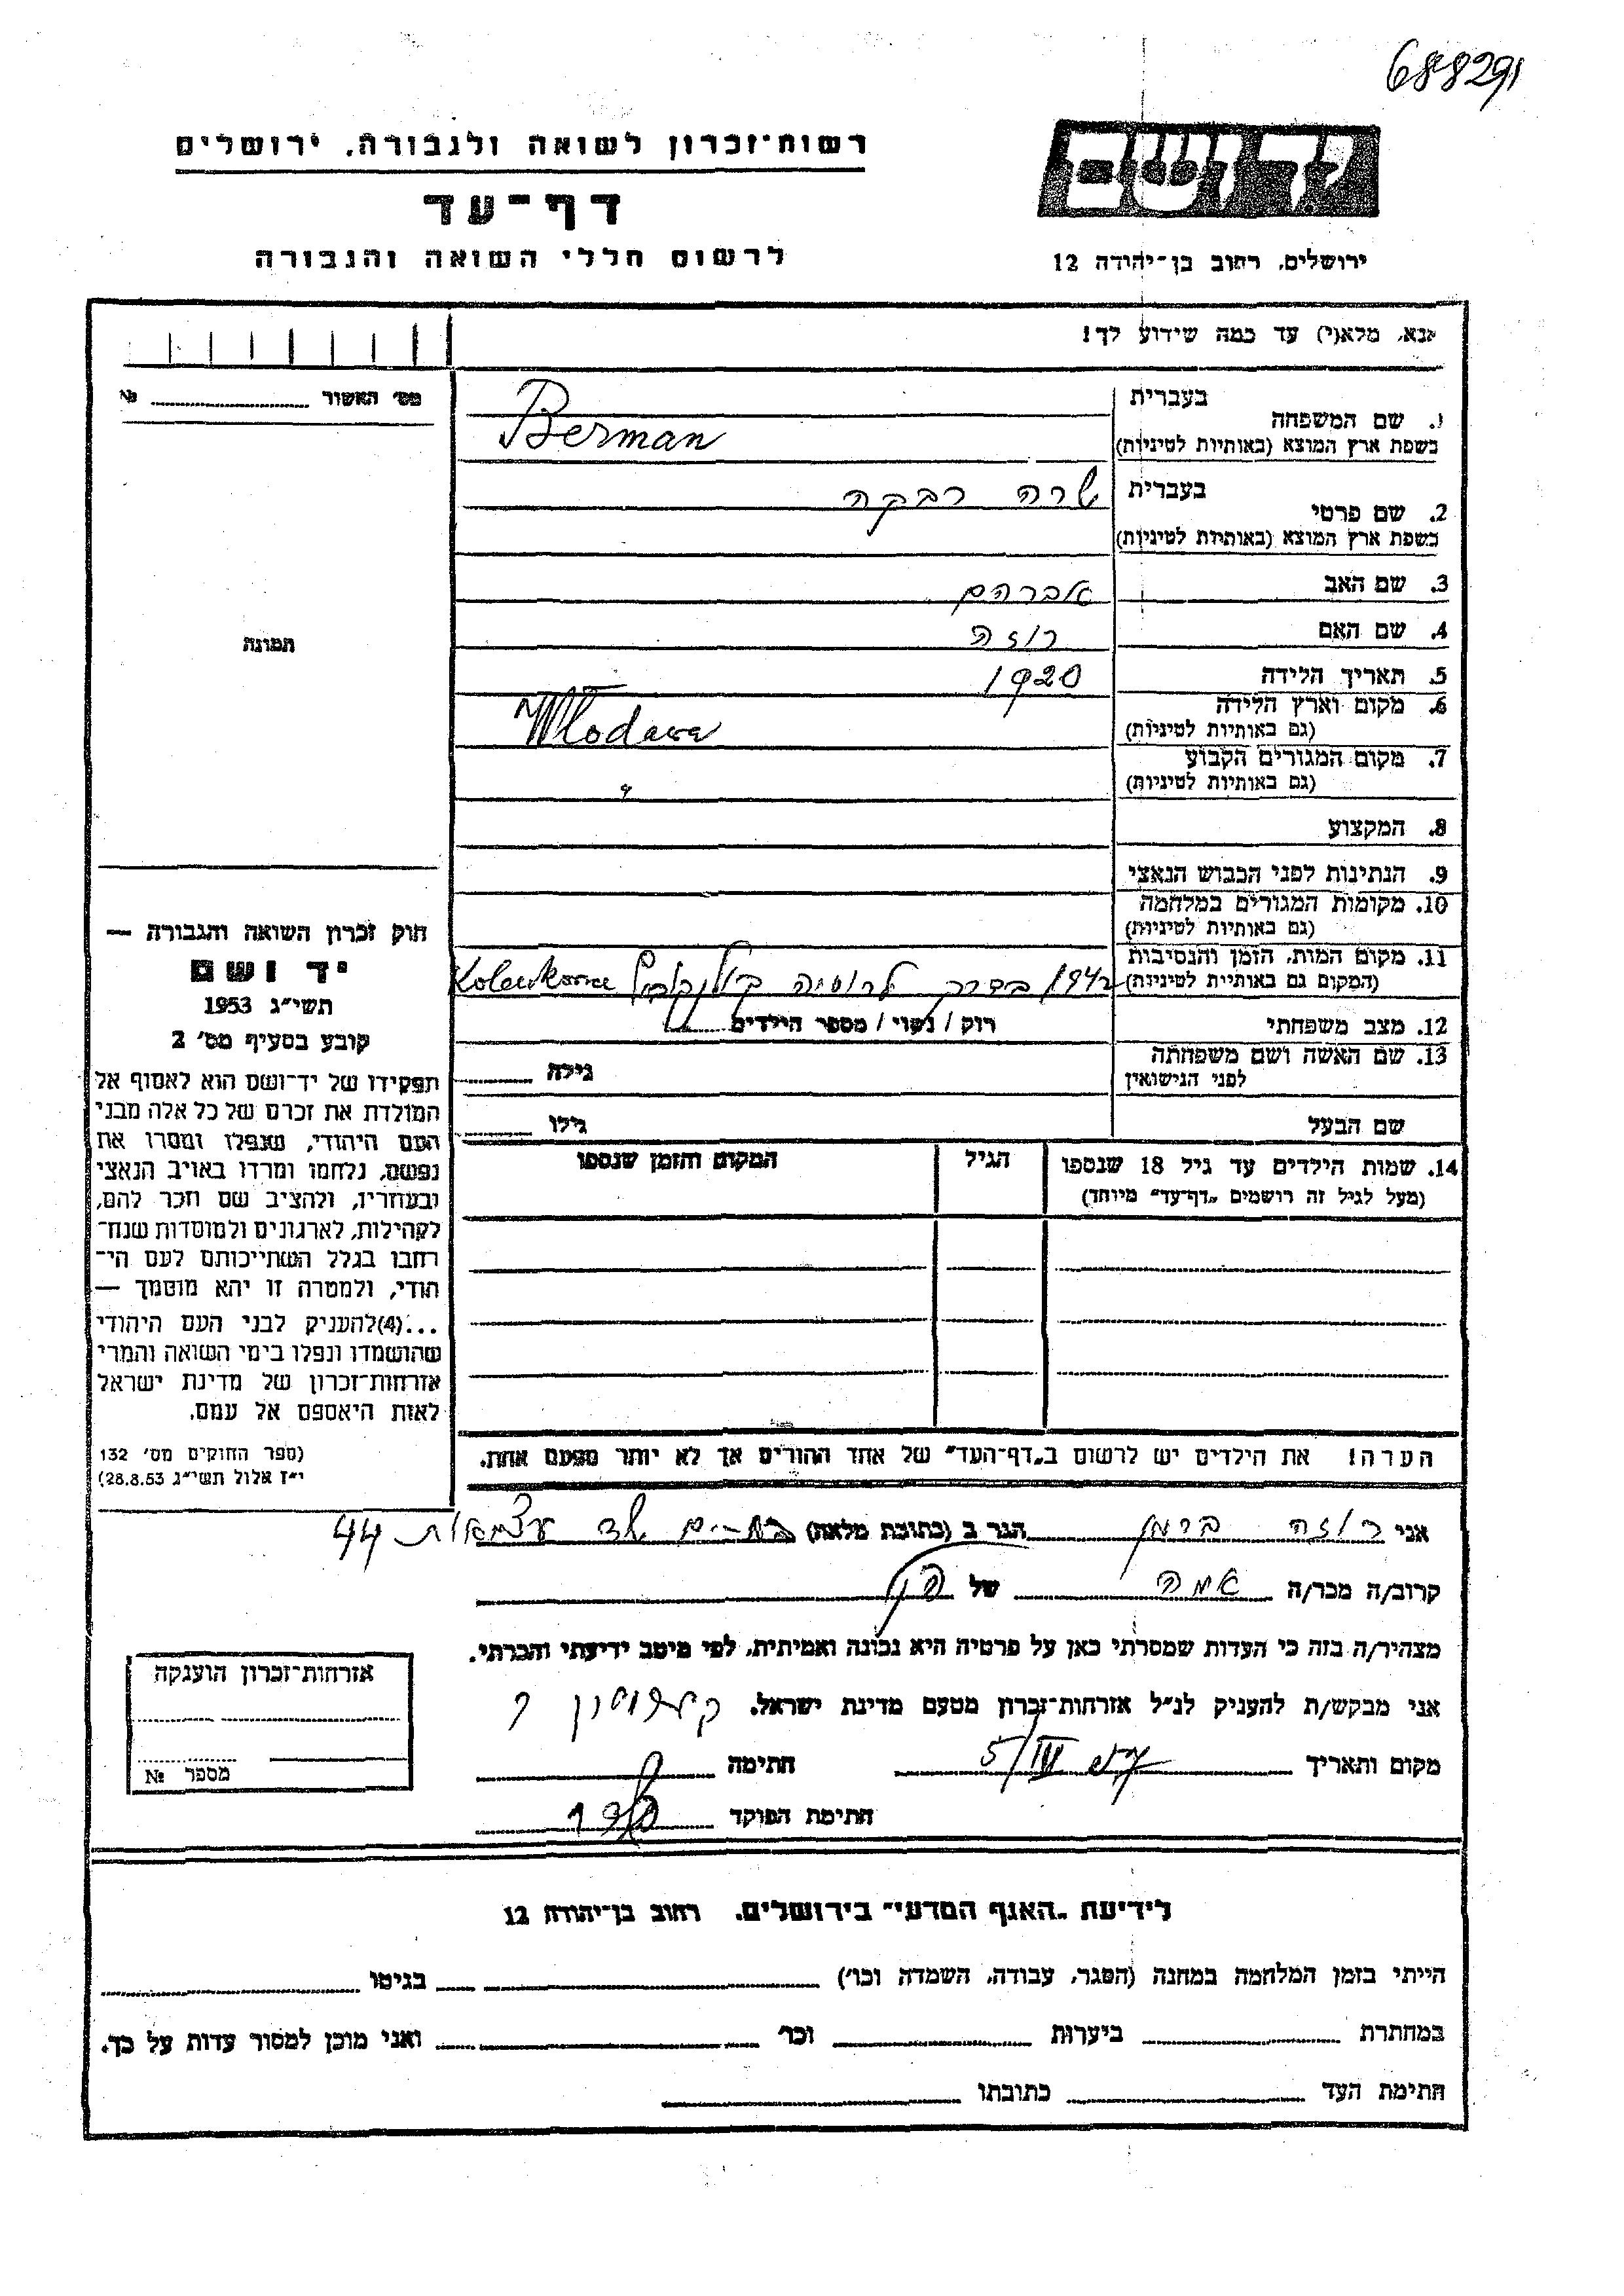 688291
רשות־זכרון לשואה ולגבורה, ירושלים
דף־עד
לרשום חללי השואה והגבורה
יד ושם
ירושלים, רחוב בן־יהודה 12
נא, מלא(י) עד כמה שידוע לך!
מס׳ האשור №
תמונה
1. שם המשפחה
בעברית
בשפת ארץ המוצא (באותיות לטיניות)
Berman
2. שם פרטי
בעברית שרה רבקה
בשפת ארץ המוצא (באותיות לטיניות)
3. שם האב אברהם
4. שם האם רוזה
5. תאריך הלידה 1920
6. מקום וארץ הלידה
(גם באותיות לטיניות) Włodawa
7. מקום המגורים הקבוע
(גם באותיות לטיניות) "
8. המקצוע
9. הנתינות לפני הכבוש הנאצי
10. מקומות המגורים במלחמה
(גם באותיות לטיניות)
11. מקום המות, הזמן והנסיבות
(המקום גם באותיות לטיניות) 1942 בדרך לרוסיה
12. מצב משפחתי רוק / נשוי / מספר הילדים
13. שם האשה ושם משפחתה
לפני הנישואין
גילה
שם הבעל גילו
14. שמות הילדים עד גיל 18 שנספו
(מעל לגיל זה רושמים „דף־עד" מיוחד)
הגיל
המקום והזמן שנספו
הערה! את הילדים יש לרשום ב„דף־העד" של אחד ההורים אך לא יותר מפעם אחת.
חוק זכרון השואה והגבורה —
יד ושם
תשי״ג 1953
קובע בסעיף מס׳ 2
תפקידו של יד־ושם הוא לאסוף אל
המולדת את זכרם של כל אלה מבני
העם היהודי, שנפלו ומסרו את
נפשם, נלחמו ומרדו באויב הנאצי
ובעוזריו, ולהציב שם וזכר להם,
לקהילות, לארגונים ולמוסדות שנח־
רבו בגלל השתייכותם לעם הי־
הודי, ולמטרה זו יהא מוסמך —
...(4)להעניק לבני העם היהודי
שהושמדו ונפלו בימי השואה והמרי
אזרחות־זכרון של מדינת ישראל
לאות היאספם אל עמם.
(ספר החוקים מס׳ 132
י״ז אלול תשי״ג 28.8.53)
אני רוזה ברמן הגר ב (כתובת מלאה) בת־ים שד עצמאות 44
קרוב/ה מכר/ה אמה של
מצהיר/ה בזה כי העדות שמסרתי כאן על פרטיה היא נכונה ואמיתית, לפי מיטב ידיעתי והכרתי.
אני מבקש/ת להעניק לנ״ל אזרחות־זכרון מטעם מדינת ישראל.
מקום ותאריך 5/IV חתימה
חתימת הפוקד
אזרחות־זכרון הוענקה
מספר №
לידיעת „האגף המדעי" בירושלים, רחוב בן־יהודה 12
הייתי בזמן המלחמה במחנה (הסגר, עבודה, השמדה וכו׳) בגיטו
במחתרת ביערות וכו׳ ואני מוכן למסור עדות על כך.
חתימת העד כתובתו